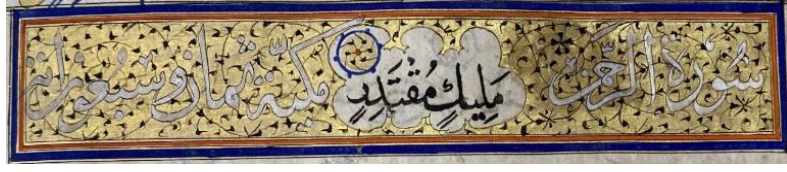 سُورَة الرَّحْمٰن مَلِيكٍ مُقْتَدِرٍ مكيّة ثمان وسبعون اية